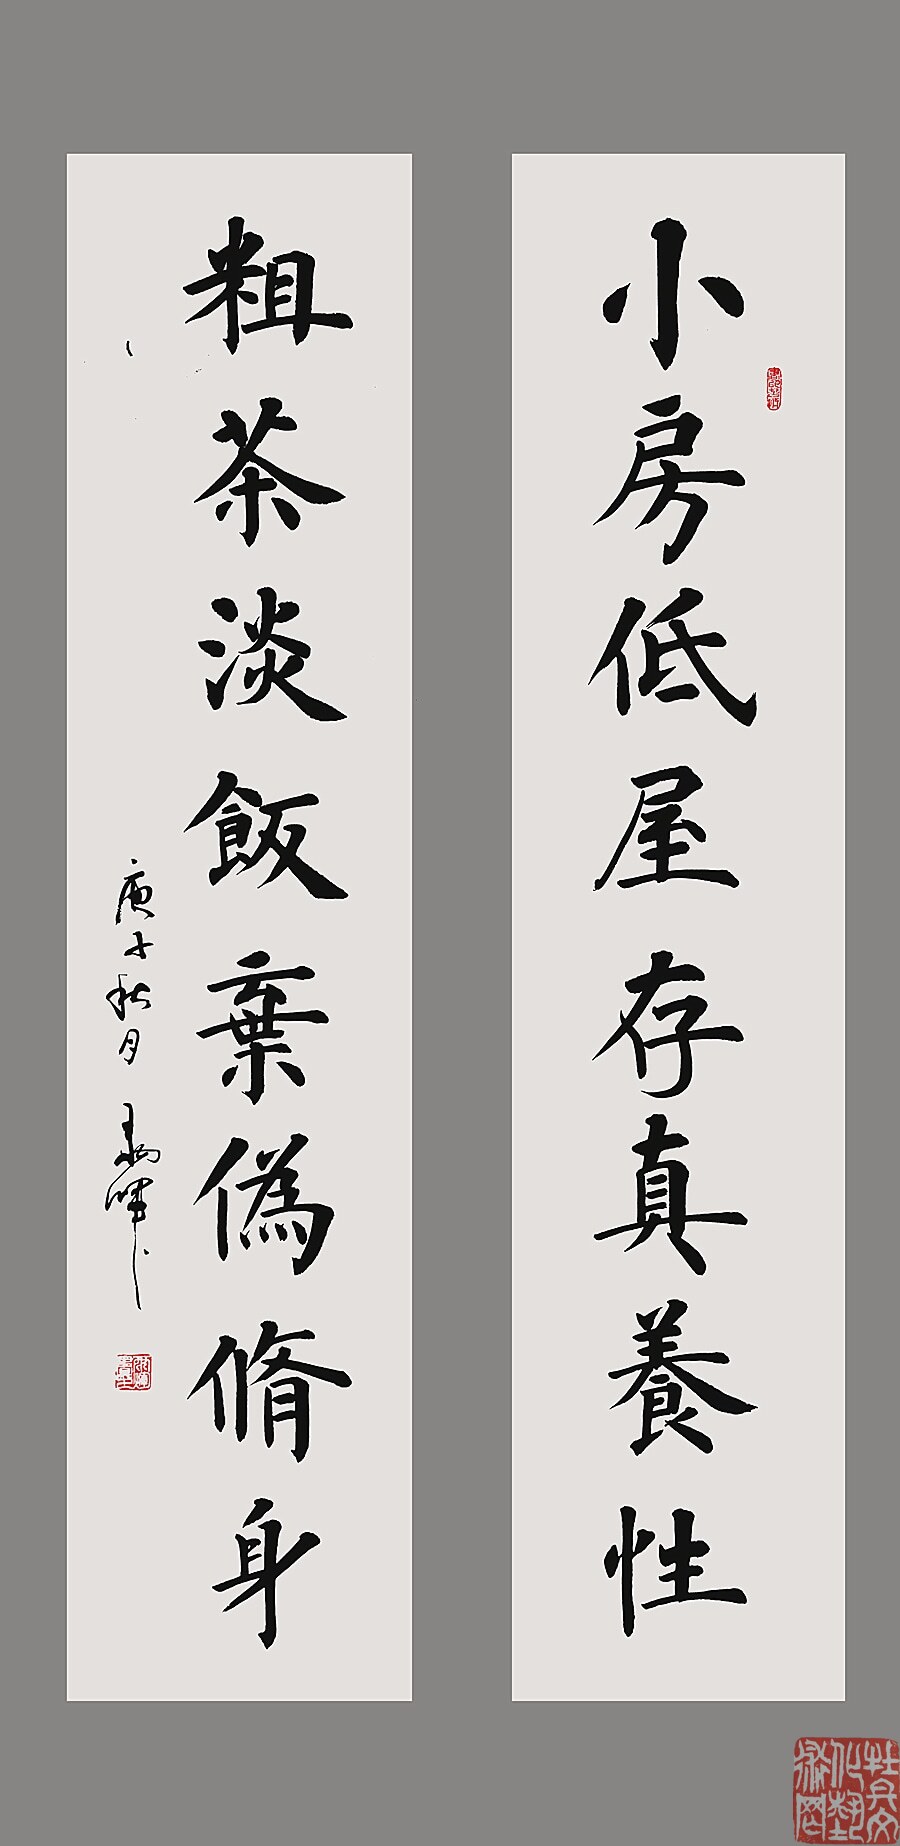 小房低屋存真養性
粗茶淡飯棄偽脩身
庚子秋月